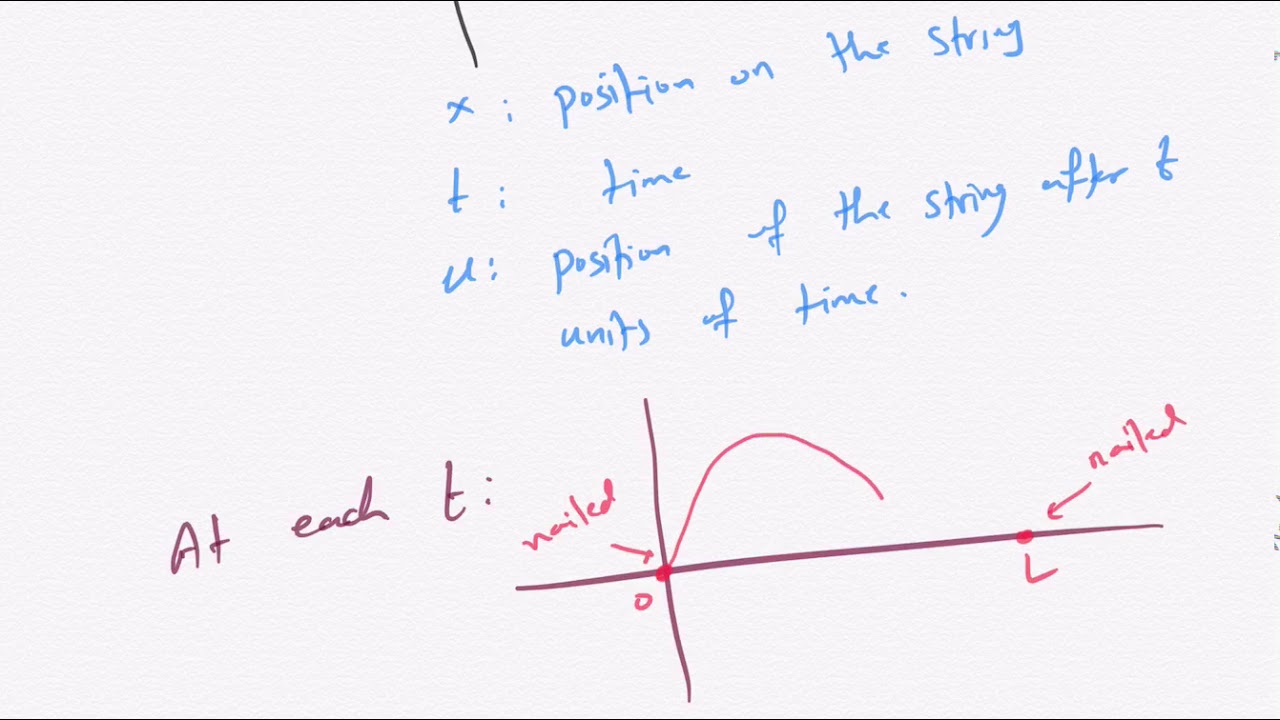 x: position on the string
t: time
u: position of the string after t
units of time.
At each t:
nailed
nailed
O
L